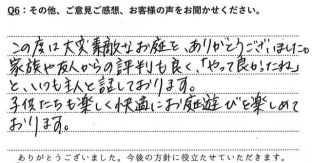 Q6:その他、ご意見ご感想、お客様の声をお聞かせください。
この度は大変素敵なお庭を、ありがとうございました。
家族や友人からの評判も良く、「やって良かったね」
と、いつも主人と話しております。
子供たちも楽しく快適にお庭遊びを楽しめて
おります。
ありがとうございました。今後の方針に役立たせていただきます。